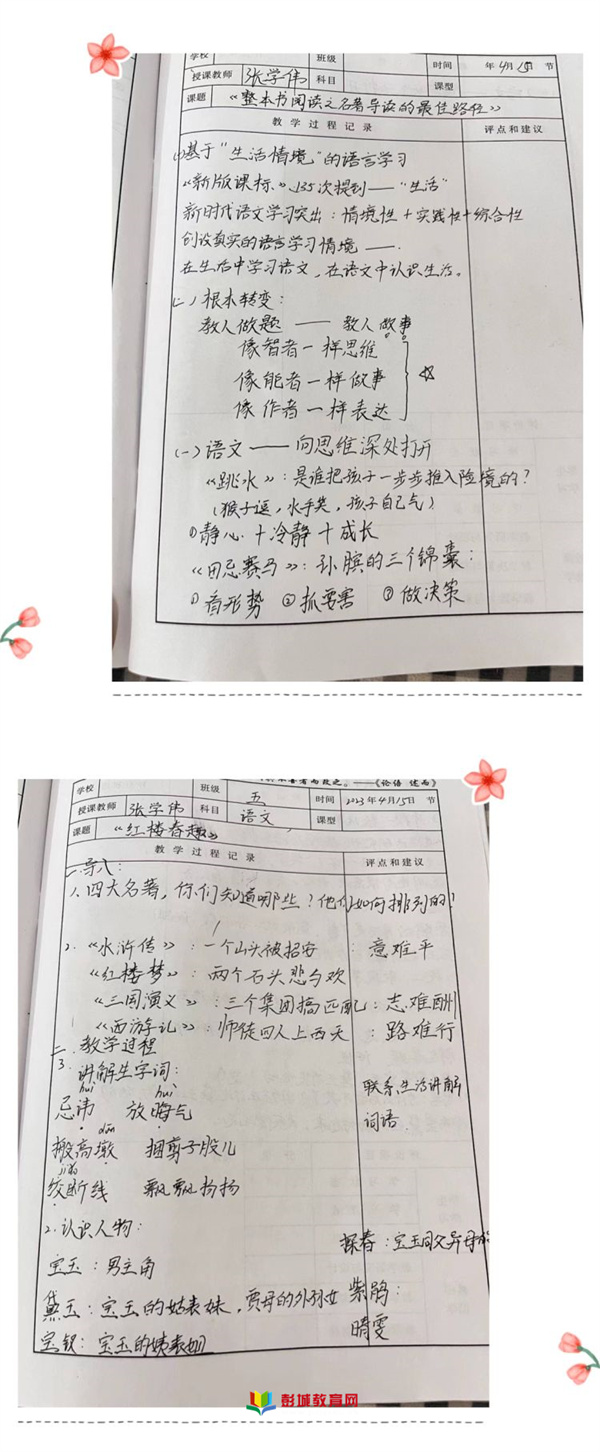 学校 班级 时间 年4月15日 节
授课教师 张学伟 科目 课型
课题 《整本书阅读之名著导读的最佳路径》
教学过程记录 评点和建议
(一)基于“生活情境”的语言学习
《新版课标》、135次提到——“生活”
新时代语文学习突出:情境性+实践性+综合性
创设真实的语言学习情境——.
在生活中学习语文,在语文中认识生活。
(二)根本转变:
教人做题 —— 教人做事
像智者一样思维
像能者一样做事
像作者一样表达
(一)语文——向思维深处打开
《跳水》:是谁把孩子一步步推入险境的?
(猴子逗,水手笑,孩子自己气)
①静心+冷静+成长
《田忌赛马》:孙膑的三个锦囊:
①看形势 ②抓要害 ③做决策
——《论语 述而》
学校 班级 五 时间 2023年4月15日 节
授课教师 张学伟 科目 语文 课型
课题 《红楼春趣》
教学过程记录 评点和建议
一.导入:
1、四大名著,你们知道哪些?他们如何排列的?
2.《水浒传》:一个山头被招安:意难平
《红楼梦》:两个石头悲与欢
《三国演义》:三个集团搞匹配:志难酬
《西游记》:师徒四人上西天:路难行
二、教学过程
3.讲解生字词:
huì huì
忌讳 放晦气
联系生活讲解
词语.
dūn
搬高墩 捆剪子股儿
jiǎo
绞断线 飘飘扬扬
2.认识人物:
探春:宝玉同父异母
宝玉:男主角
黛玉:宝玉的姑表妹,贾母的外孙女 紫鹃:
晴雯
宝钗:宝玉的姨表姐
彭城教育网